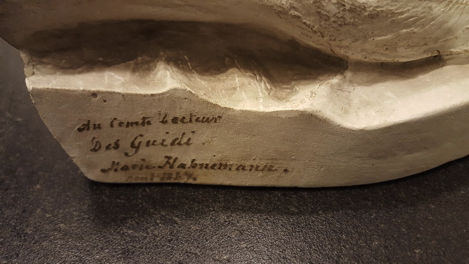 Au Comte Docteur
Des Guidi.
Marie Hahnemann.